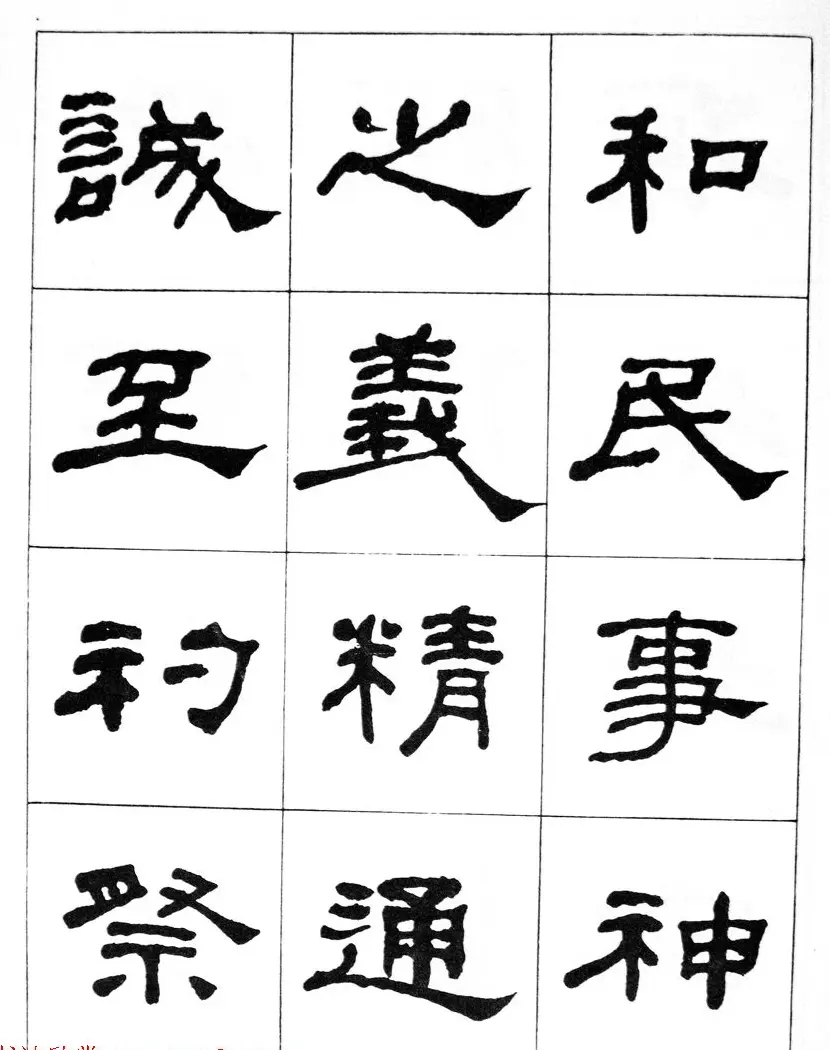 和民事神
之義精通
誠至礿祭